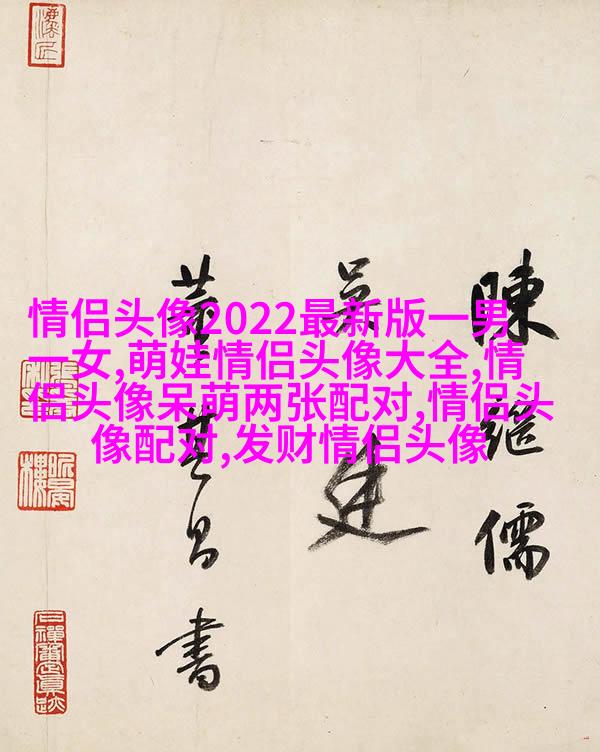 情侣头像2022最新版一男
一女,萌娃情侣头像大全,情
侣头像呆萌两张配对,情侣头
像配对,发财情侣头像
陳繼儒
吴廷
董其昌書